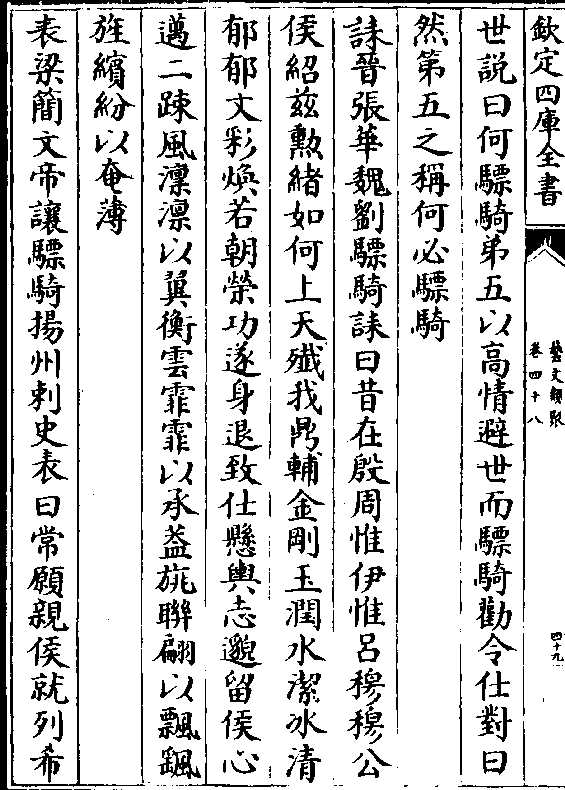 欽定四庫全書
藝文類聚
卷四十八
四十九
世説曰何驃騎弟五以高情避世而驃騎勸令仕對曰
然第五之稱何必驃騎
誄晉張華魏劉驃騎誄曰昔在殷周惟伊惟呂穆穆公
侯紹兹勲緒如何上天殲我鼎輔金剛玉潤水潔冰清
郁郁文彩煥若朝榮功遂身退致仕懸輿志邈留侯心
邁二踈風凛凛以翼衡雲霏霏以承葢旐聯翩以飄颻
旌繽紛以奄薄
表梁簡文帝讓驃騎揚州刺史表曰常願親侯就列希